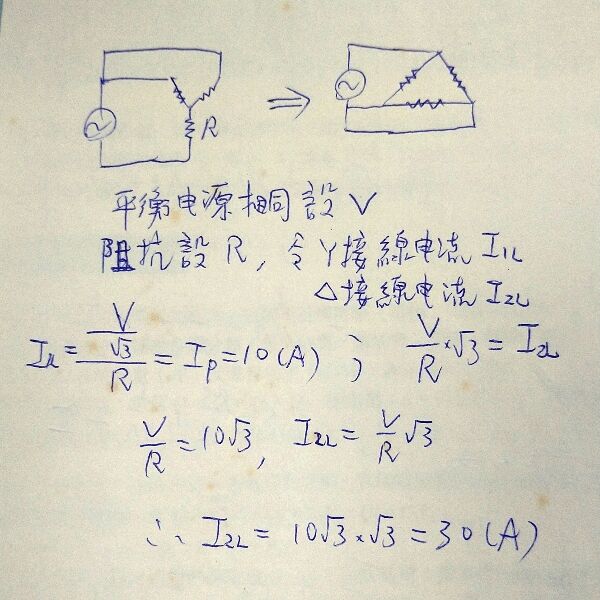 R
平衡电源相同設 V
阻抗設 R, 令 Y接線电流 I1L
△接線电流 I2L
I1L = (V/√3)/R = Ip = 10(A) ; V/R × √3 = I2L
V/R = 10√3, I2L = V/R √3
∴ I2L = 10√3 × √3 = 30(A)